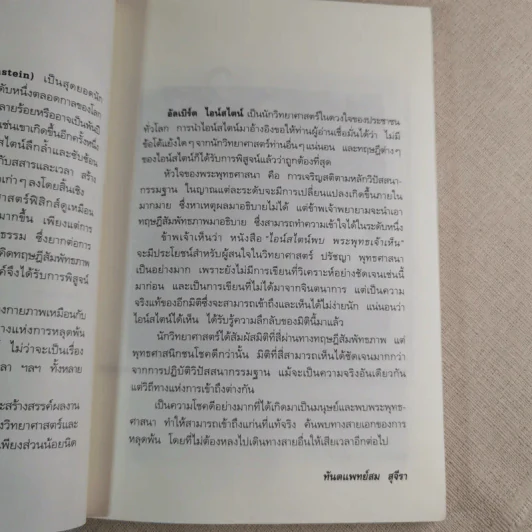 stein) เป็นสุดยอดนัก
ดับหนึ่งตลอดกาลของโลก
ลายร้อยหรืออาจเป็นพันปี
เช่นเขาเกิดขึ้นอีกครั้งหนึ่ง
สไตน์ลึกล้ำและซับซ้อน
กับสสารและเวลา สร้าง
เก่าๆ ลงโดยสิ้นเชิง
าสตร์ฟิสิกส์ดูเหมือน
มากขึ้น เพียงแต่การ
ธรรม ซึ่งยากต่อการ
คิดทฤษฎีสัมพัทธภาพ
ค์จึงได้รับการพิสูจน์
างกายภาพเหมือนกับ
างแห่งการหลุดพ้น
ไม่ว่าจะเป็นเรื่อง
ลา ฯลฯ ทั้งหลาย
ะสร้างสรรค์ผลงาน
างวิทยาศาสตร์และ
เพียงส่วนน้อยนิด
อัลเบิร์ต ไอน์สไตน์ เป็นนักวิทยาศาสตร์ในดวงใจของประชาชน
ทั่วโลก การนำไอน์สไตน์มาอ้างอิงขอให้ท่านผู้อ่านเชื่อมั่นได้ว่า ไม่มี
ข้อโต้แย้งใดๆ จากนักวิทยาศาสตร์ท่านอื่นๆ แน่นอน และทฤษฎีต่างๆ
ของไอน์สไตน์ก็ได้รับการพิสูจน์แล้วว่าถูกต้องที่สุด
หัวใจของพระพุทธศาสนา คือ การเจริญสติตามหลักวิปัสสนา-
กรรมฐาน ในญาณแต่ละระดับจะมีการเปลี่ยนแปลงเกิดขึ้นภายใน
มากมาย ซึ่งหาเหตุผลมาอธิบายไม่ได้ แต่ข้าพเจ้าพยายามจะนำเอา
ทฤษฎีสัมพัทธภาพมาอธิบาย ซึ่งสามารถทำความเข้าใจได้ในระดับหนึ่ง
ข้าพเจ้าเห็นว่า หนังสือ "ไอน์สไตน์พบ พระพุทธเจ้าเห็น"
จะมีประโยชน์สำหรับผู้สนใจในวิทยาศาสตร์ ปรัชญา พุทธศาสนา
เป็นอย่างมาก เพราะยังไม่มีการเขียนที่วิเคราะห์อย่างชัดเจนเช่นนี้
มาก่อน และเป็นการเขียนที่ไม่ได้มาจากจินตนาการ แต่เป็นความ
จริงแท้ของอีกมิติซึ่งจะสามารถเข้าถึงและเห็นได้ไม่ง่ายนัก แน่นอนว่า
ไอน์สไตน์ได้เห็น ได้รับรู้ความลึกลับของมิตินี้มาแล้ว
นักวิทยาศาสตร์ได้สัมผัสมิติที่สี่ผ่านทางทฤษฎีสัมพัทธภาพ แต่
พุทธศาสนิกชนโชคดีกว่านั้น มิติที่สี่สามารถเห็นได้ชัดเจนมากกว่า
จากการปฏิบัติวิปัสสนากรรมฐาน แม้จะเป็นความจริงอันเดียวกัน
แต่วิถีทางแห่งการเข้าถึงต่างกัน
เป็นความโชคดีอย่างมากที่ได้เกิดมาเป็นมนุษย์และพบพระพุทธ-
ศาสนา ทำให้สามารถเข้าถึงแก่นที่แท้จริง ค้นพบทางสายเอกของการ
หลุดพ้น โดยที่ไม่ต้องหลงไปเดินทางสายอื่นให้เสียเวลาอีกต่อไป
ทันตแพทย์สม สุจีรา